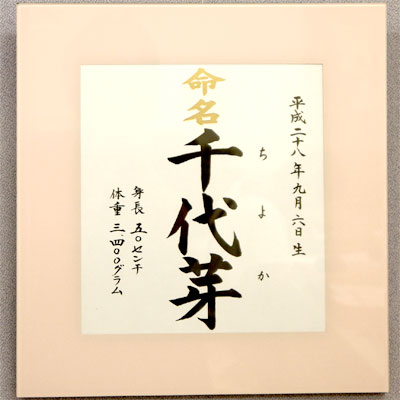 平成二十八年九月六日生
命名
千代芽
ちよか
身長 五〇センチ
体重 三、四〇〇グラム